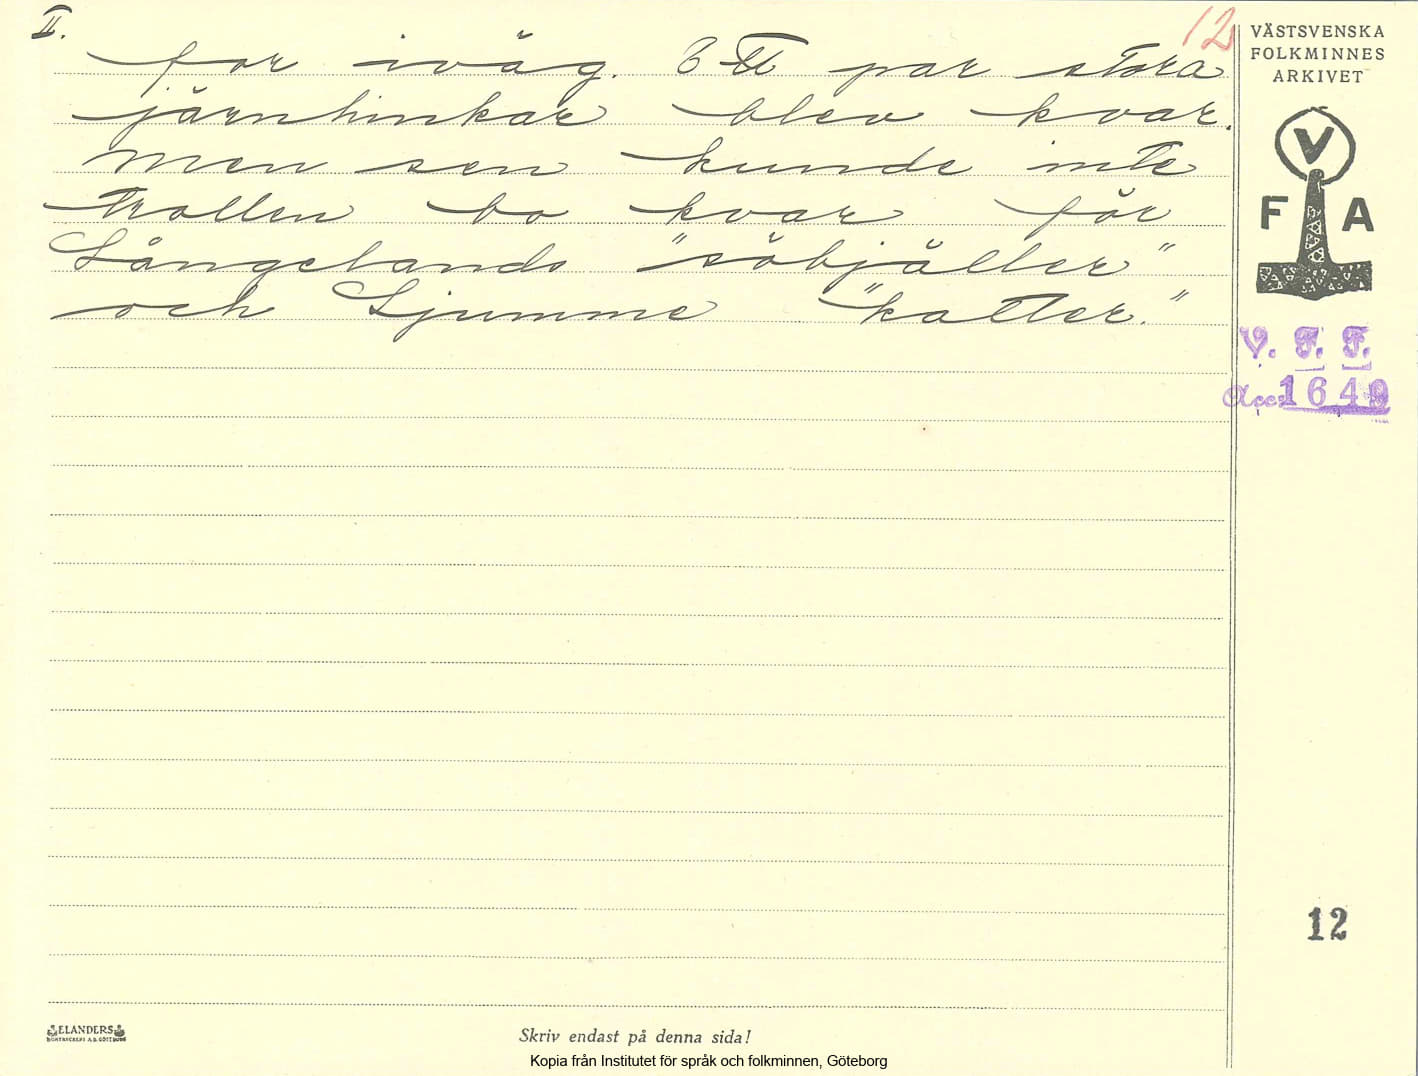 II.
12
for iväg. Ett par stora
järnhinkar blev kvar.
Men sen kunde inte
trollen bo kvar för
Långelands "söbjäller"
och Ljumme "katter."
VÄSTSVENSKA
FOLKMINNES
ARKIVET
V
F A
V. F. F.
Acc: 1649
12
ELANDERS
Skriv endast på denna sida!
Kopia från Institutet för språk och folkminnen, Göteborg